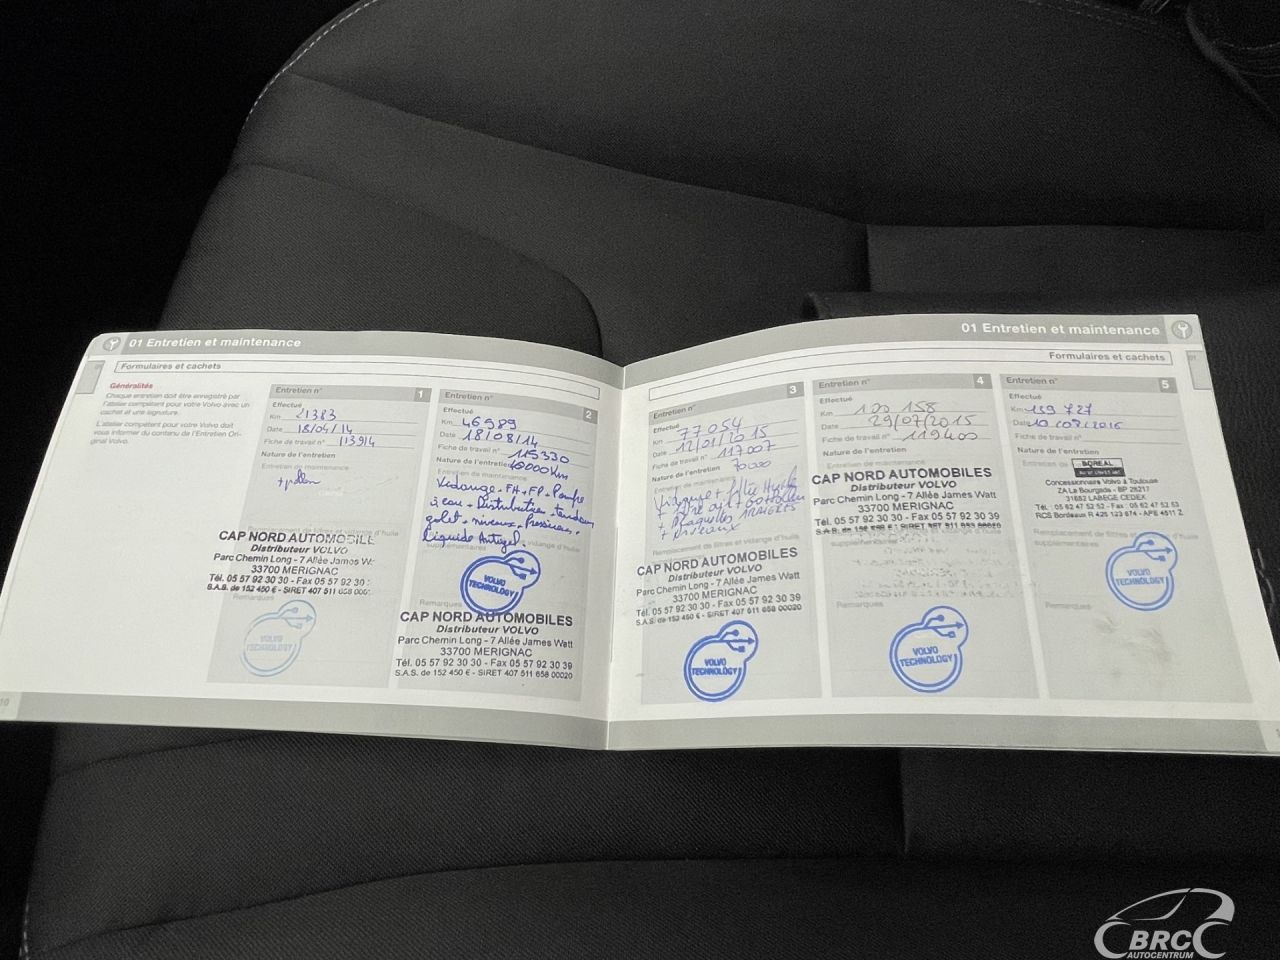 01 Entretien et maintenance
Formulaires et cachets
Généralités
Chaque entretien doit être enregistré par
l'atelier compétent pour votre Volvo avec un
cachet et une signature.
L'atelier compétent pour votre Volvo doit
vous informer du contenu de l'Entretien Ori-
ginal Volvo.
10
Entretien n° 1
Effectué
Km 21383
Date 18/04/14
Fiche de travail n° 113914
Nature de l'entretien
Entretien de maintenance
Remplacement de filtres et vidange d'huile
CAP NORD AUTOMOBILE
Distributeur VOLVO
Parc Chemin Long - 7 Allée James W
33700 MERIGNAC
Tél. 05 57 92 30 30 - Fax 05 57 92 30
S.A.S. de 152 450 € - SIRET 407 511 658 000
Remarques
VOLVO
TECHNOLOGY
Entretien n° 2
Effectué
Km 46989
Date 18/08/14
Fiche de travail n° 115330
Nature de l'entretien
Entretien de maintenance
Vidange - FH - FP - Pompe
à eau - Distribution - tendeur
galet - niveaux - Pressions -
liquide Antigel.
supplémentaires
VOLVO
TECHNOLOGY
Remarques
CAP NORD AUTOMOBILES
Distributeur VOLVO
Parc Chemin Long - 7 Allée James Watt
33700 MERIGNAC
Tél. 05 57 92 30 30 - Fax 05 57 92 30 39
S.A.S. de 152 450 € - SIRET 407 511 658 00020
01 Entretien et maintenance
Formulaires et cachets
Entretien n° 3
Effectué
Km 77054
Date 12/01/2015
Fiche de travail n° 117007
Nature de l'entretien
Entretien de maintenance
+ Plaquettes ARRIERES
+ Niveaux
Remplacement de filtres et vidange d'huile
supplémentaires
CAP NORD AUTOMOBILES
Distributeur VOLVO
Parc Chemin Long - 7 Allée James Watt
33700 MERIGNAC
Tél. 05 57 92 30 30 - Fax 05 57 92 30 39
S.A.S. de 152 450 € - SIRET 407 511 658 00020
VOLVO
TECHNOLOGY
Entretien n° 4
Effectué
Km 100 158
Date 29/07/2015
Fiche de travail n° 119400
Nature de l'entretien
Entretien de maintenance
CAP NORD AUTOMOBILES
Distributeur VOLVO
Parc Chemin Long - 7 Allée James Watt
33700 MERIGNAC
Tél. 05 57 92 30 30 - Fax 05 57 92 30 39
S.A.S. de 152 450 € - SIRET 407 511 658 00020
supplémentaires
Remarques
VOLVO
TECHNOLOGY
Entretien n° 5
Effectué
Km 139 727
Date 10/08/2016
Fiche de travail n°
Nature de l'entretien
Entretien de
BOREAL
Concessionnaire Volvo à Toulouse
ZA La Bourgade - BP 28217
31682 LABEGE CEDEX
Tél. : 05 62 47 52 52 - Fax : 05 62 47 52 53
RCS Bordeaux R 425 123 674 - APE 4511 Z
Remplacement de filtres et vidange d'huile
supplémentaires
VOLVO
TECHNOLOGY
Remarques
BRC
AUTOCENTRUM